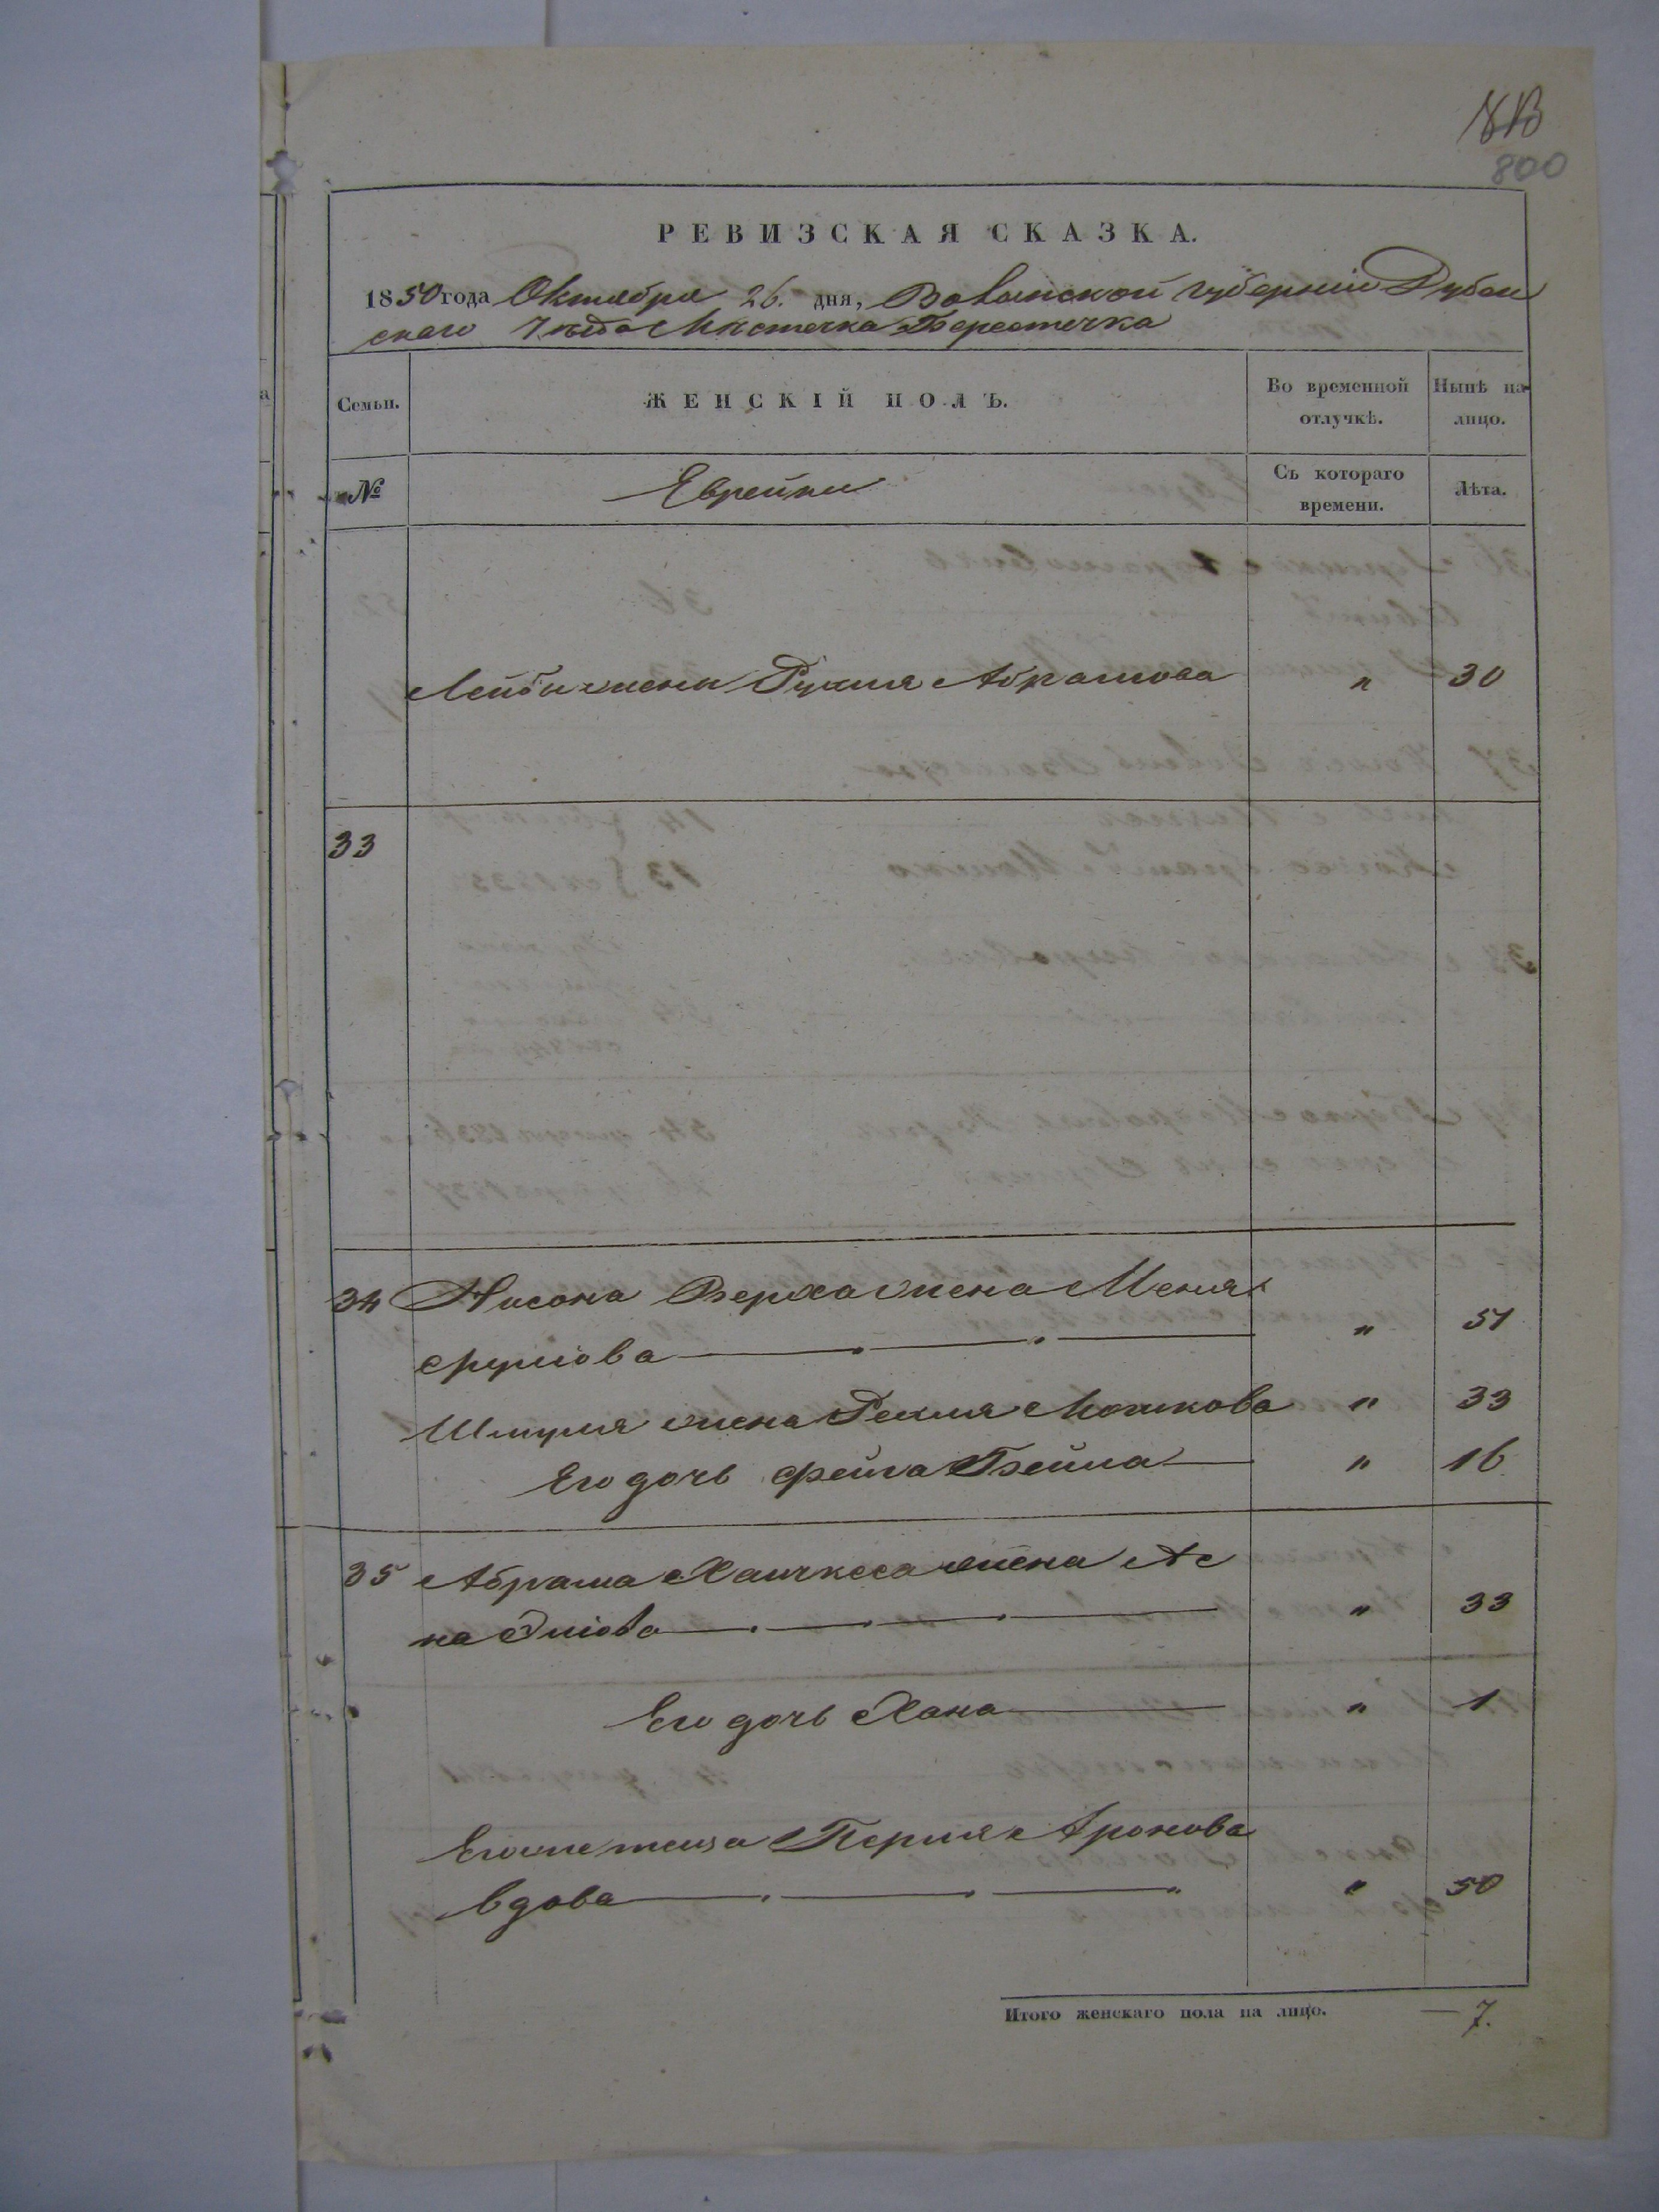 800
РЕВИЗСКАЯ СКАЗКА.
1850 года Октября 26. дня, Волынской губерніи Дубен
скаго уѣзда Мѣстечка Берестечка
Семьи. ЖЕНСКІЙ ПОЛЪ. Во временной отлучкѣ. Нынѣ на лицо.
№ Еврейки Съ котораго времени. Лѣта.
Лейби жена Рухля Абрамова " 30
33
34 Нисона Верха жена Меня
Сруліова " 51
Шмуля жена Рехля Мошкова " 33
Его дочь Фейга Бейла " 16
35 Абрама жена Ле
на Эліова " 33
Его дочь Хана " 1
Его же теща Перля Аронова
вдова " 50
Итого женскаго пола на лицо. — 7.